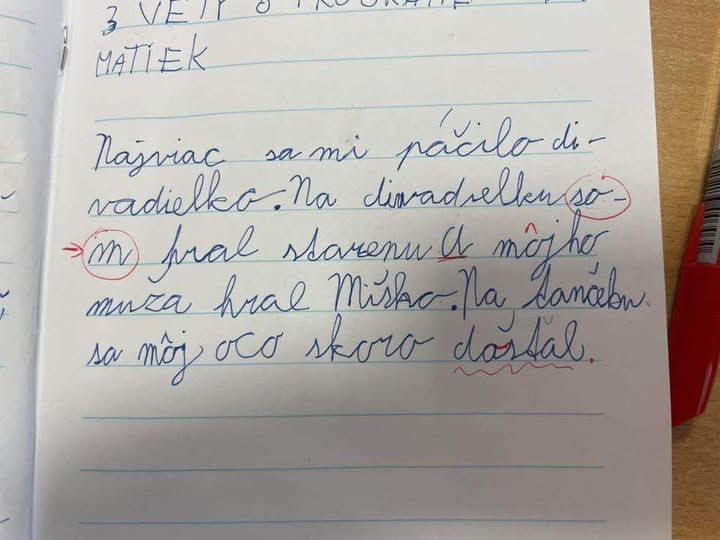 3 VETY O PROGRAME
MATIEK
Najviac sa mi páčilo di-
vadielko. Na divadielku so-
m hral starenu a môjho
muža hral Miško. Na tančeku
sa môj oco skoro došťal.